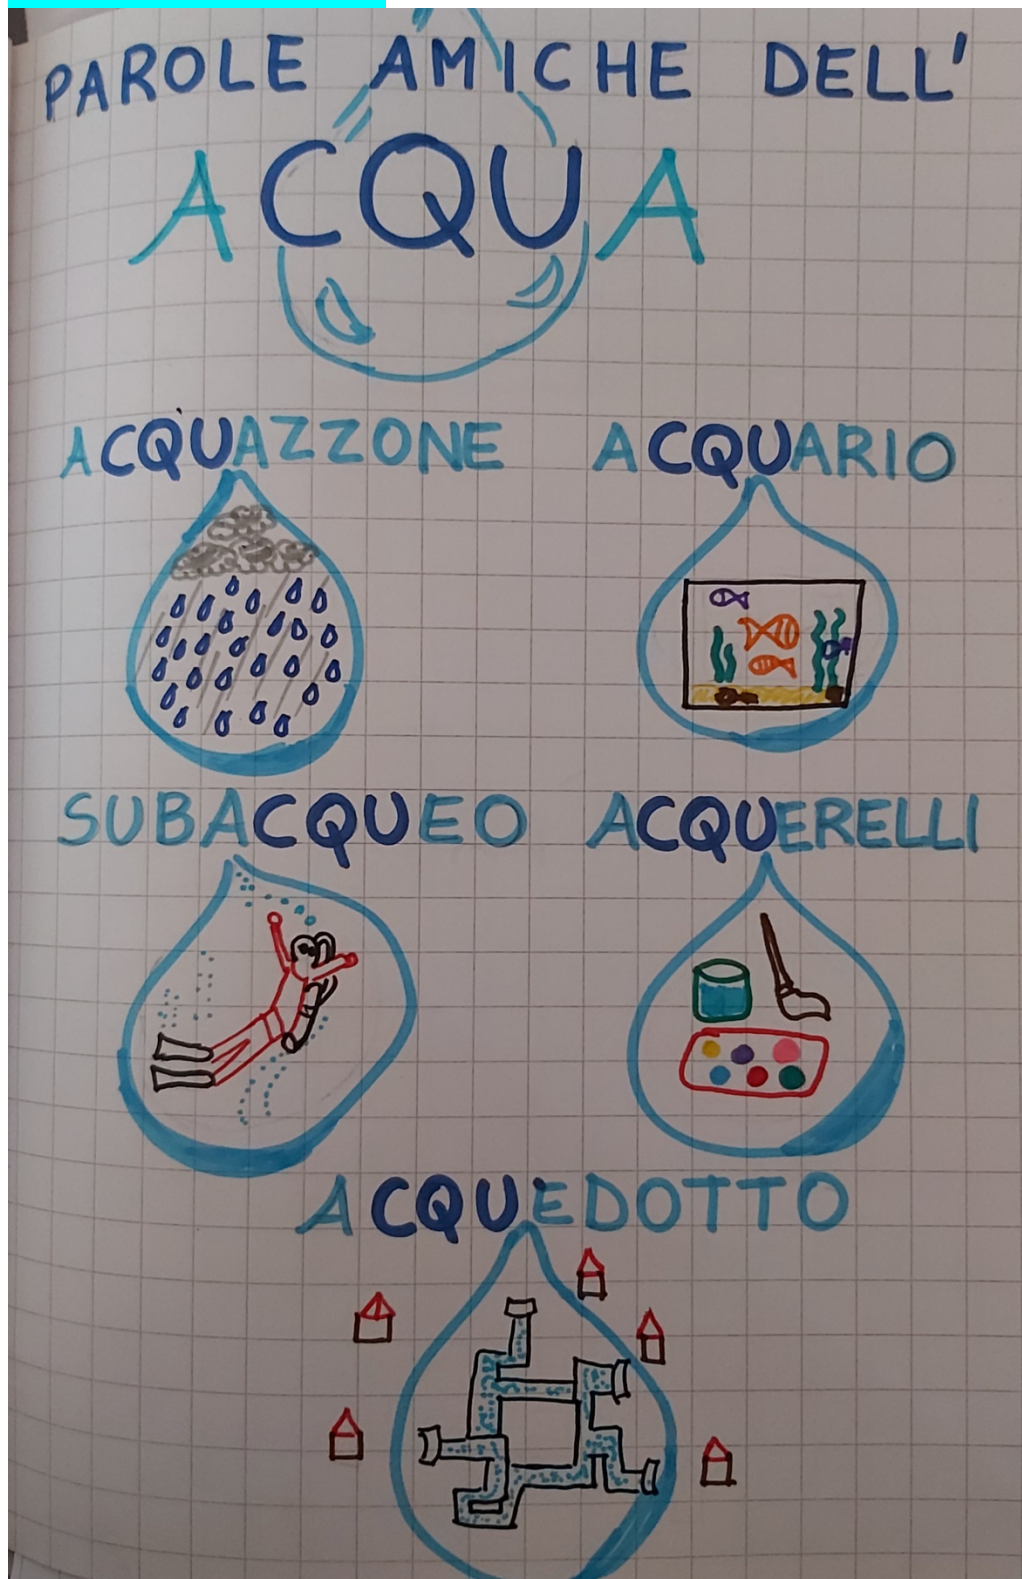 PAROLE AMICHE DELL'
ACQUA
ACQUAZZONE
ACQUARIO
SUBACQUEO
ACQUERELLI
ACQUEDOTTO